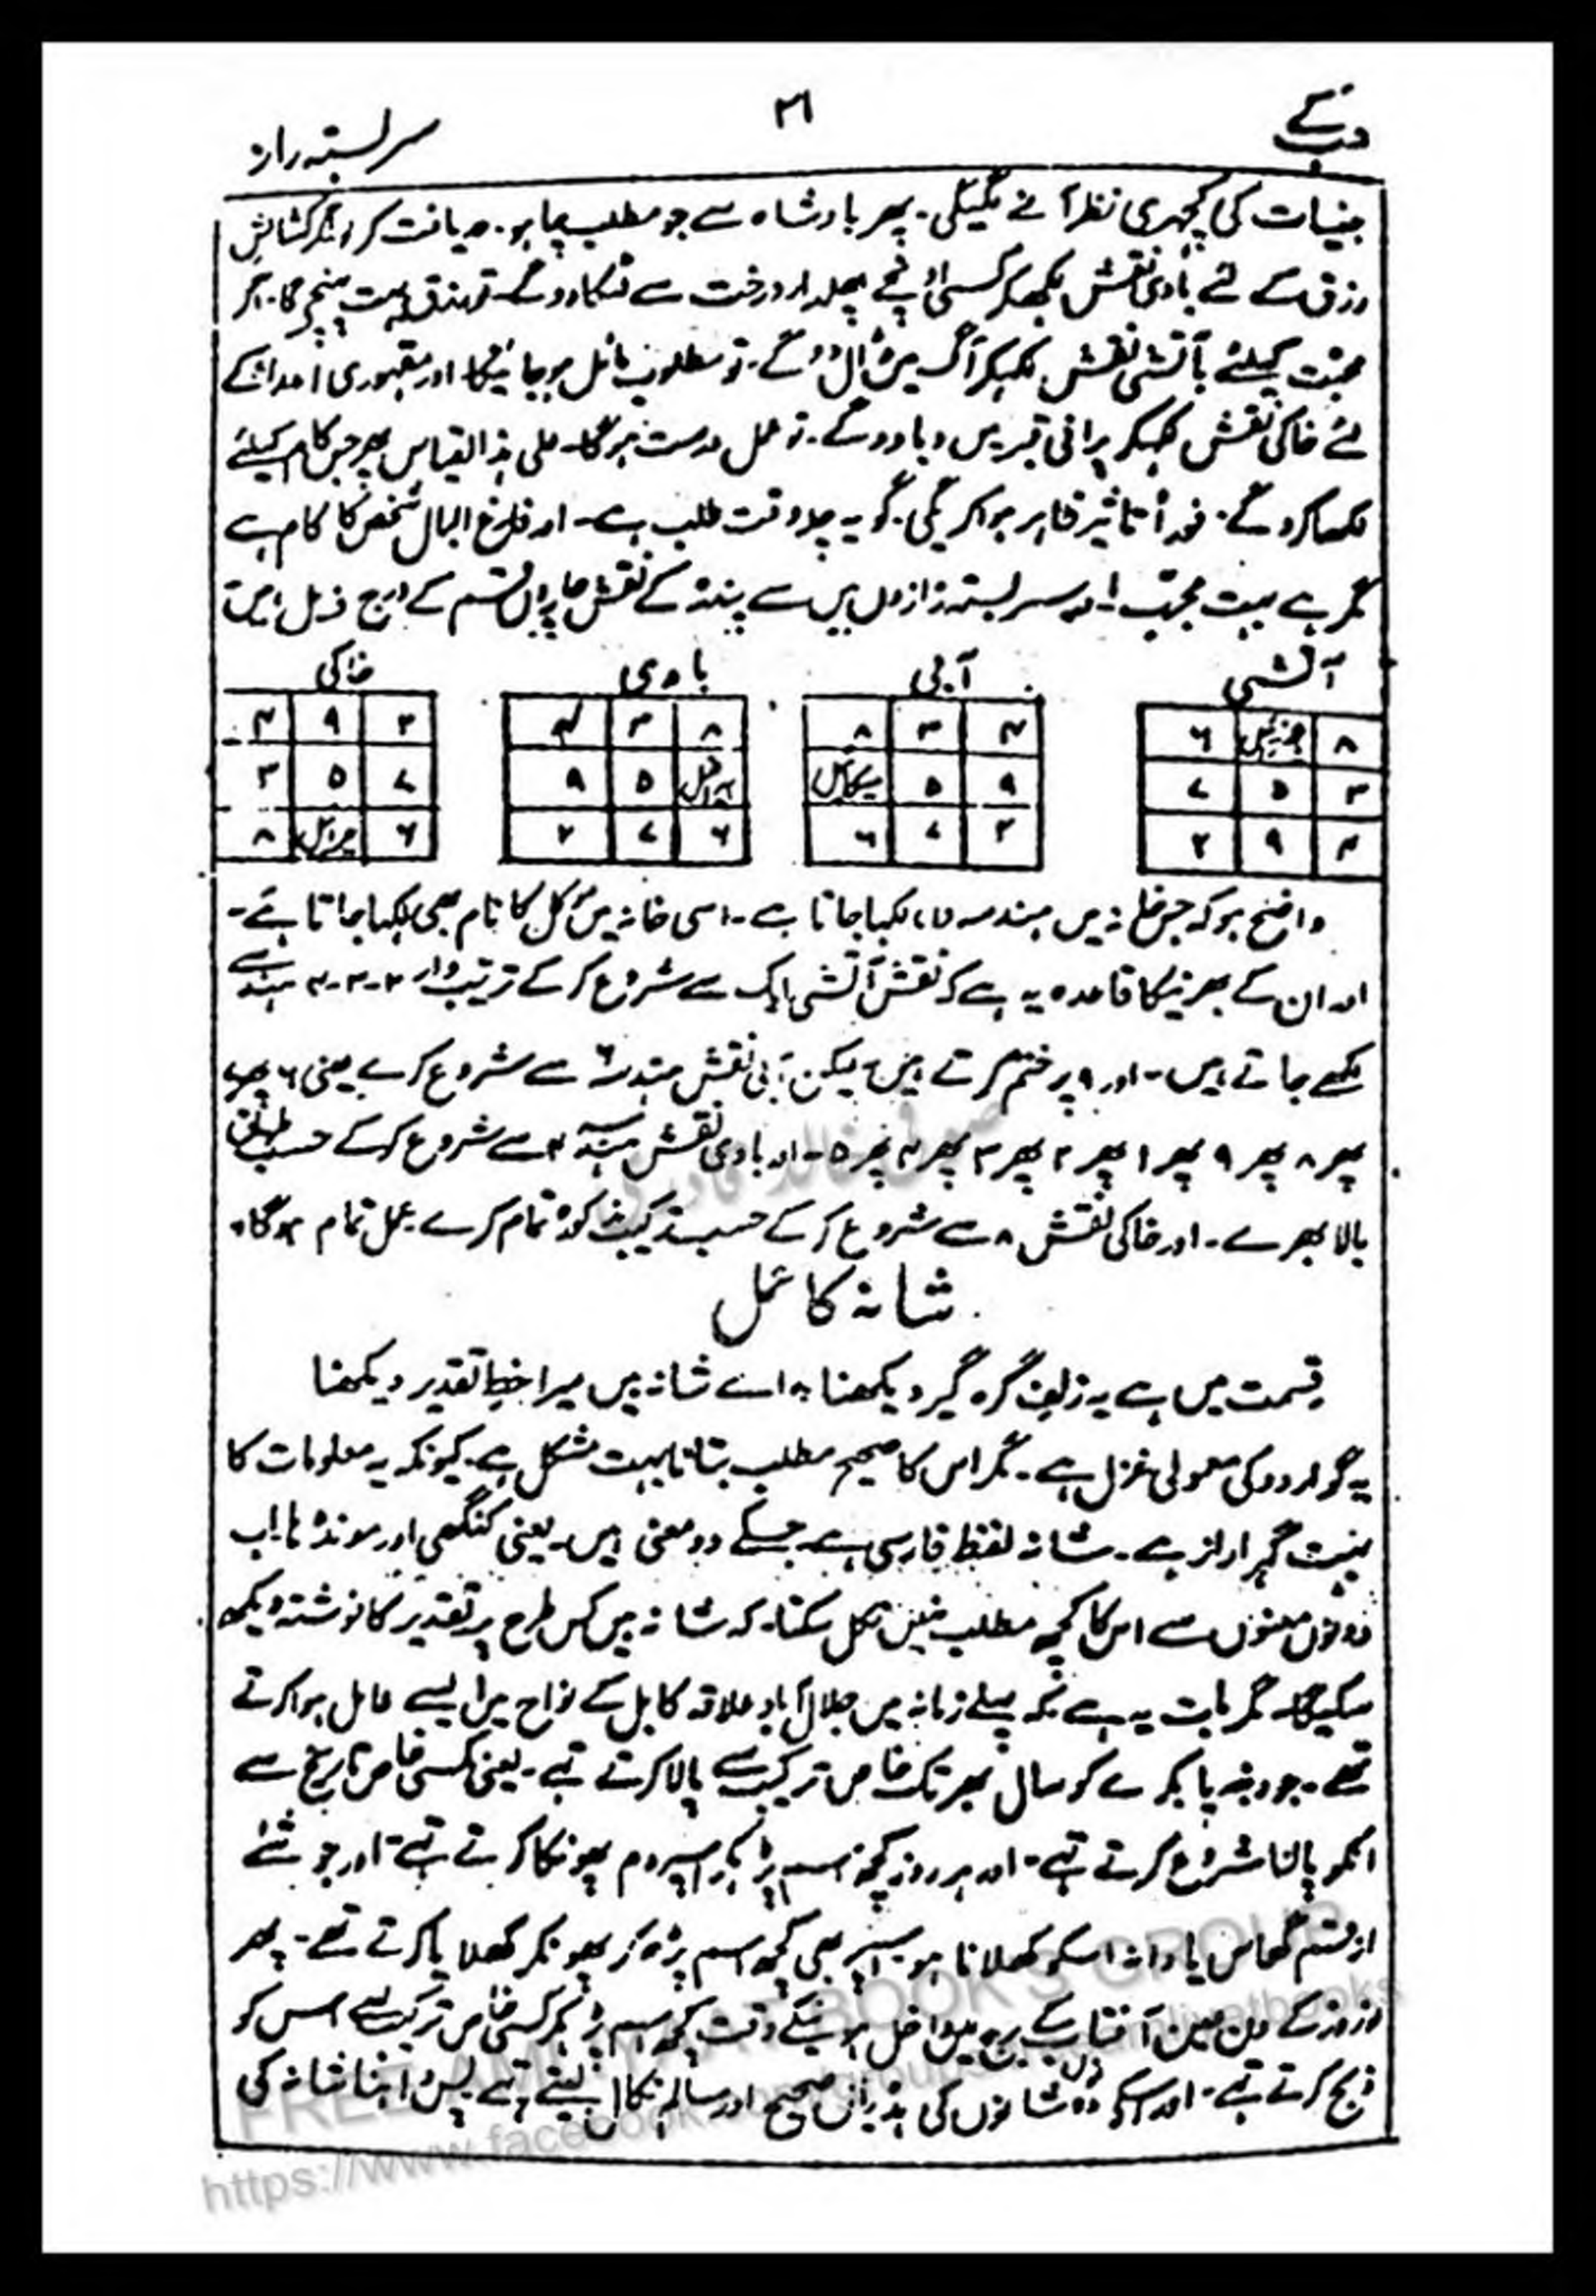 دنیا کے
۳۱
سربستہ راز
جنیات کی کچہری نظر آنے لگیگی۔ پھر بادشاہ سے جو مطلب چاہو۔ دریافت کرو۔ اگر کشائش
رزق کے لئے بادی نقش لکھکر کسی اونچے پھلدار درخت سے لٹکا دو گے۔ تو رزق بہت پہنچے گا۔ اگر
محبت کیلئے آتشی نقش لکھکر آگ میں ڈال دو گے۔ تو مطلوب مائل ہو جائیگا۔ اور مقہوری اعدا کے
لئے خاکی نقش لکھکر پرانی قبر میں دبا دو گے۔ تو عمل درست ہوگا۔ علی ہذا القیاس پھر جس کام کیلئے
لکھا کرو گے۔ فوراً تاثیر ظاہر ہوا کریگی۔ گو یہ چلہ وقت طلب ہے۔ اور فارغ البال شخص کا کام ہے
مگر ہے بہت مجرب اور سربستہ رازوں میں سے پندرہ کے نقش چاروں قسم کے درج ذیل ہیں
آتشی آبی بادی خاکی
۸ ۶ ۴ ۳ ۸ ۸ ۳ ۴ ۲ ۹ ۴
۳ ۵ ۷ ۹ ۵ میکائیل ۵ ۹ ۷ ۵ ۳
۴ ۹ ۲ ۲ ۷ ۶ ۶ ۷ ۲ ۶ ۸
واضح ہو کہ جس خانہ میں ہندسہ لکہا جاتا ہے۔ اسی خانہ میں مؤکل کا نام بھی لکہا جاتا ہے۔
اور ان کے بھرنیکا قاعدہ یہ ہے کہ نقش آتشی ایک سے شروع کر کے ترتیب وار ۲-۳-۴ ہندسے
لکھے جاتے ہیں۔ اور ۹ پر ختم کرتے ہیں۔ لیکن آبی نقش ہندسہ ۶ سے شروع کرے یعنی ۶ پھر ۷
پھر ۸ پھر ۹ پھر ۱ پھر ۲ پھر ۳ پھر ۴ پھر ۵۔ اور بادی نقش ہندسہ سے شروع کر کے حسب طریق
بالا بھرے۔ اور خاکی نقش ۸ سے شروع کر کے حسب ترکیب مذکورہ تمام کرے عمل تمام ہوگا۔
شانہ کا عمل
قسمت میں ہے یہ زلف گرہ گیر دیکھنا اے شانہ بیں میرا خط تقدیر دیکھنا
یہ گو اردو کی معمولی غزل ہے۔ مگر اس کا صحیح مطلب بتانا بہت مشکل ہے۔ کیونکہ یہ معلومات کا
بہت گہرا راز ہے۔ شانہ لفظ فارسی ہے۔ جسکے دو معنی ہیں۔ یعنی کنگھی اور مونڈھا اب
دونوں معنوں سے اس کا کچھ مطلب نہیں نکل سکتا۔ کہ شانہ میں کس طرح پر تقدیر کا نوشتہ دیکھ
سکیگا۔ مگر بات یہ ہے کہ پہلے زمانہ میں جلال آباد علاقہ کابل کے نواح میں ایسے عامل ہوا کرتے
تھے۔ جو دنبہ یا بکرے کو سال بھر تک خاص ترکیب سے پالا کرتے تہے۔ یعنی کسی خاص تاریخ سے
انکو پالنا شروع کرتے تہے۔ اور ہر روز کچھ اسم پڑھکر اسپر دم پھونکا کرتے تہے۔ اور جو شئے
از قسم گھاس یا دانہ اسکو کھلانا ہو۔ اسپر بھی کچھ اسم پڑھ کر پھونکر کھلایا کرتے تھے۔ پھر
نوروز کے دن معین آفتاب کے برج میں داخل ہونیکے وقت کچھ اسم پڑھکر کسی خاص ترکیب سے اس کو
ذبح کرتے تہے۔ اور اسکے دو شانوں کی ہڈیاں صحیح اور سالم نکال لیتے تہے پس اپنا شانہ کی
صوفی خالد قادری
FREE AMLIYAT BOOK'S GROUP
https://www.facebook.com/groups/amliyatbooks